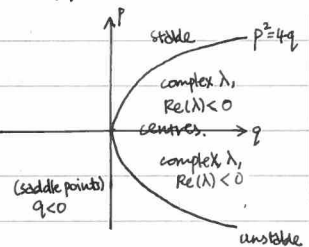 P
stable
p²=4q
complex λ,
Re(λ)<0
centres.
q
complex λ,
Re(λ)<0
(saddle points)
q<0
unstable